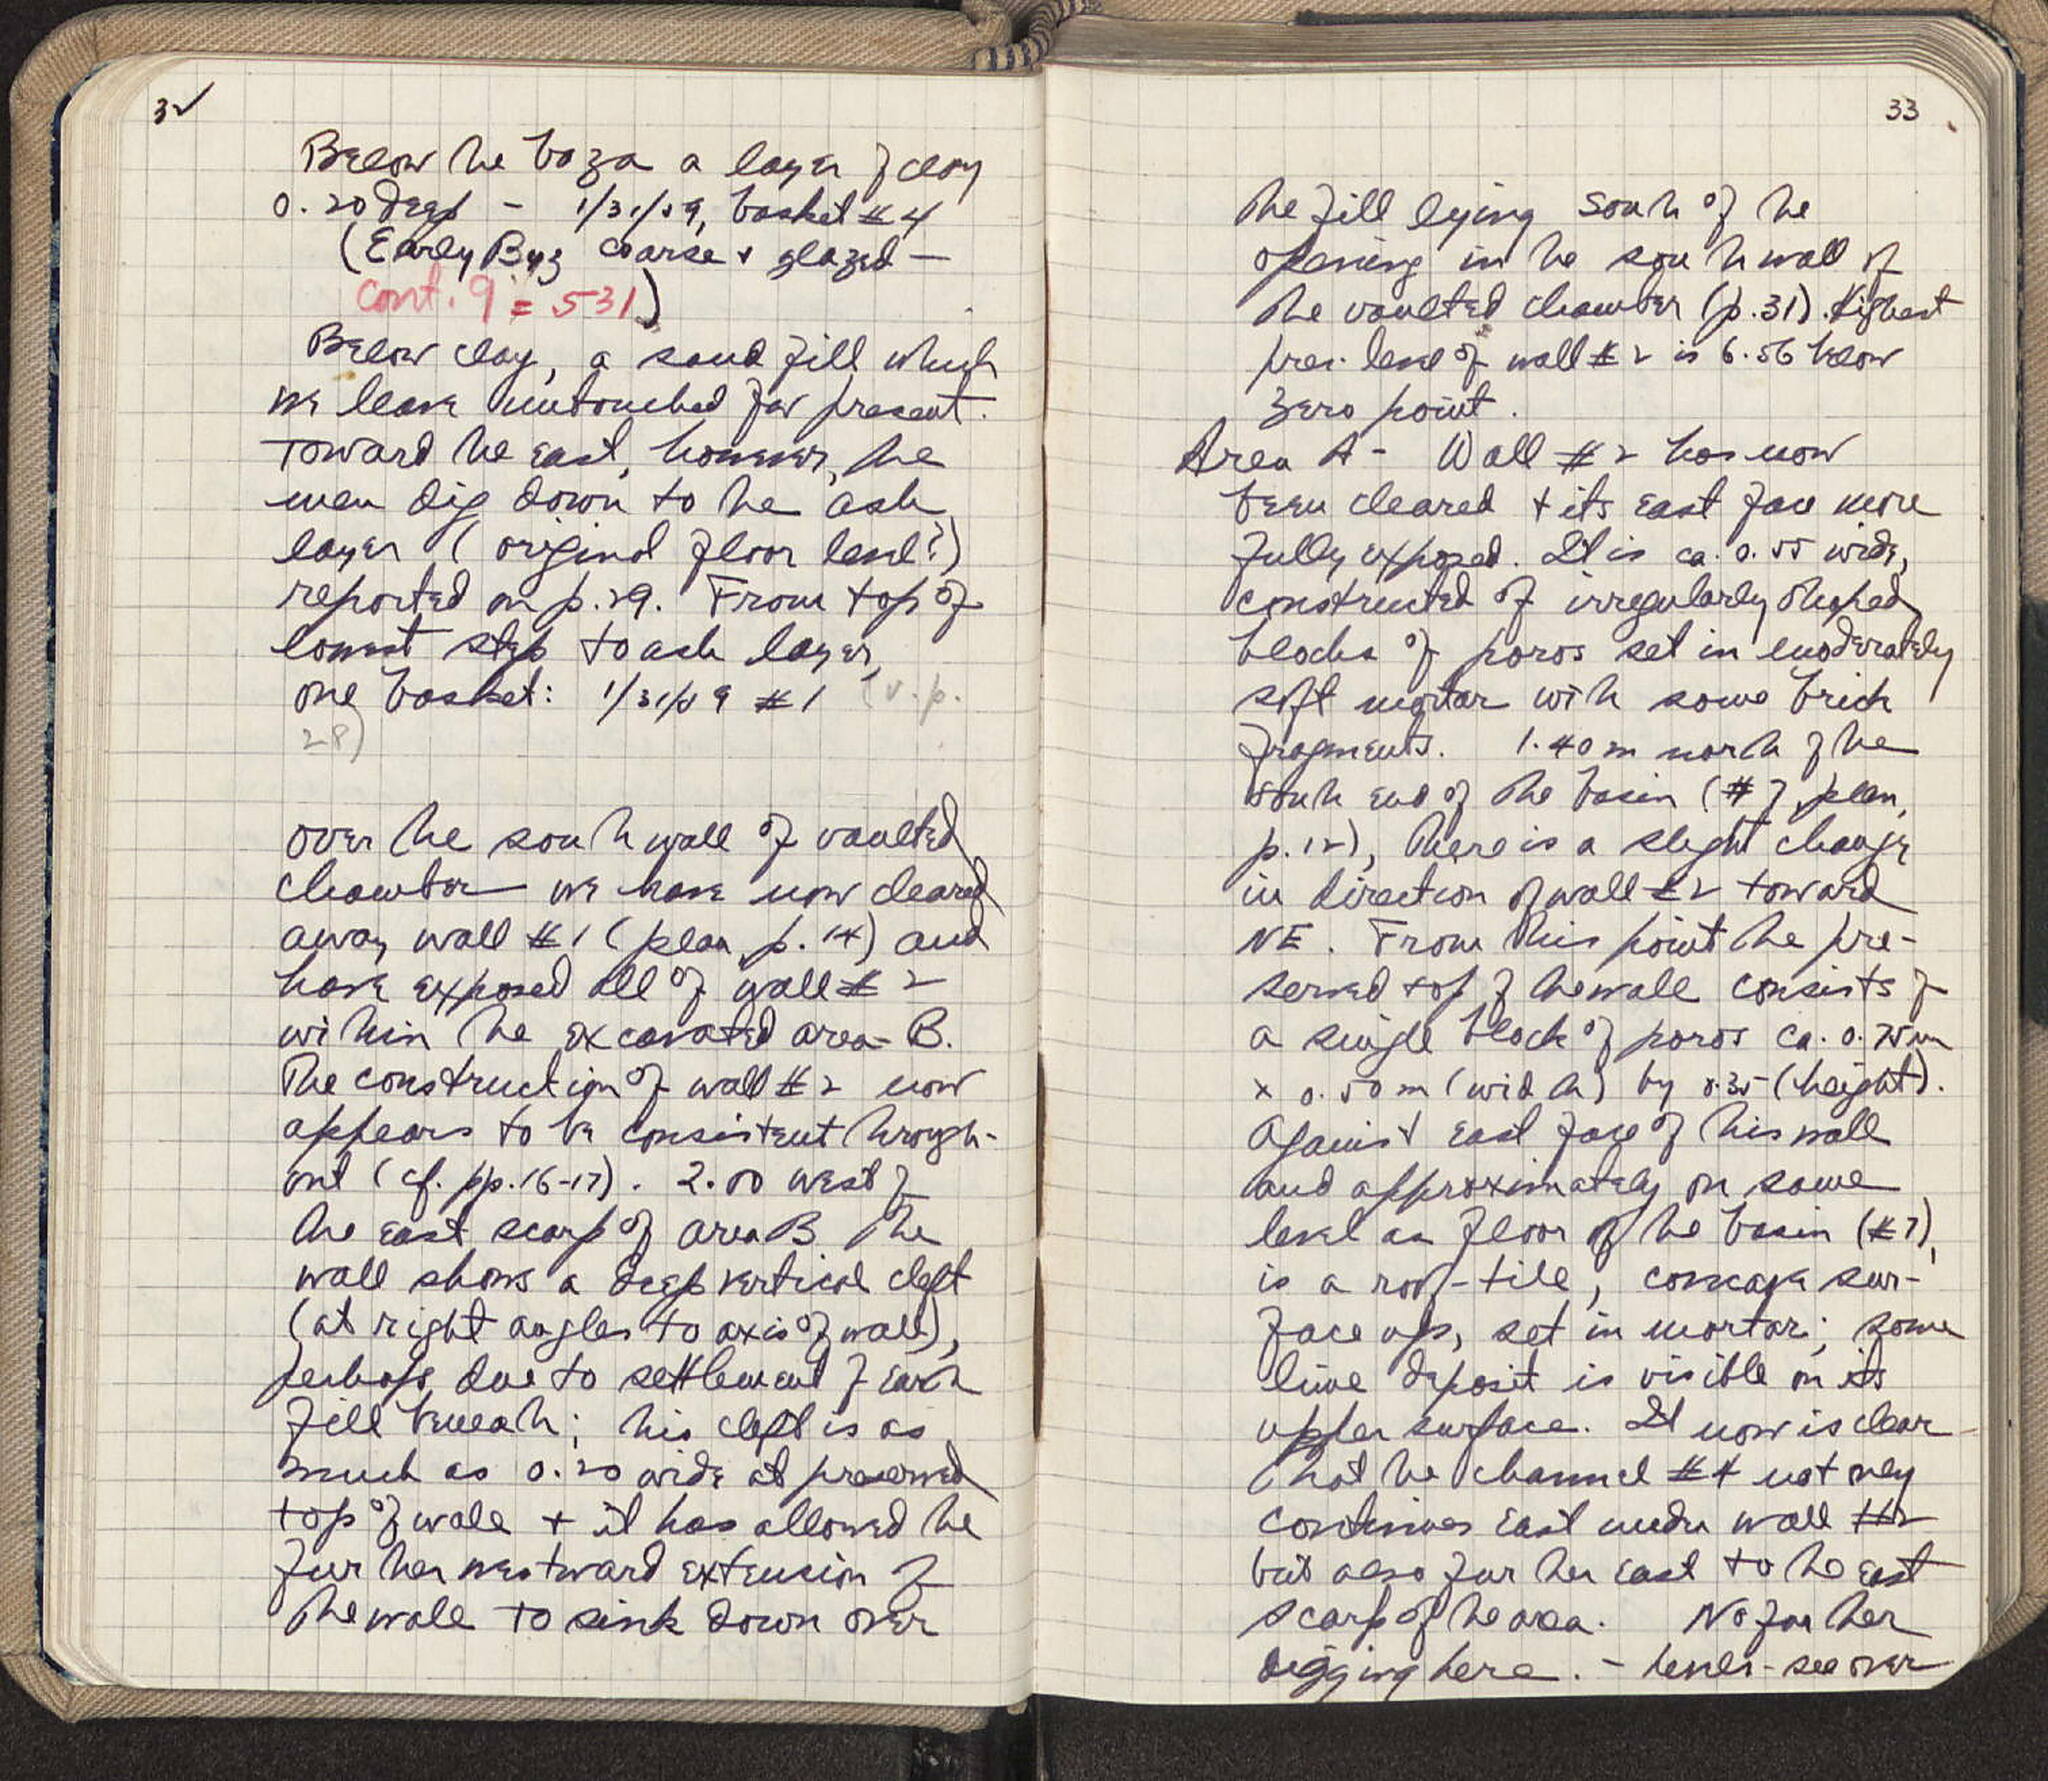 32
Below the baza a layer of clay
0.20 deep - 1/31/59, basket #4
(Early Byz coarse + glazed -
Cont. 9 = 531)
Below clay, a sand fill which
we leave untouched for present.
Toward the east, however, the
men dig down to the ash
layer (original floor level?)
reported on p. 29. From top of
lowest step to ash layer,
one basket: 1/31/59 #1 (v. p.
28)
Over the south wall of vaulted
chamber we have now cleared
away wall #1 (plan, p. 14) and
have exposed all of wall #2
within the excavated area B.
The construction of wall #2 now
appears to be consistent through-
out (cf. pp. 16-17). 2.00 west of
the east scarp of area B the
wall shows a deep vertical cleft
(at right angles to axis of wall),
perhaps due to settlement of earth
fill beneath; this cleft is as
much as 0.20 wide at preserved
top of wall + it has allowed the
further westward extension of
the wall to sink down over
33
the fill lying south of the
opening in the south wall of
the vaulted chamber (p. 31). Highest
pres. level of wall #2 is 6.56 below
zero point.
Area A - Wall #2 has now
been cleared + its east face more
fully exposed. It is ca. 0.55 wide,
constructed of irregularly shaped
blocks of poros set in moderately
soft mortar with some brick
fragments. 1.40 m north of the
south end of the basin (#7, plan,
p. 12), there is a slight change
in direction of wall #2 toward
NE. From this point the pre-
served top of the wall consists of
a single block of poros ca. 0.75 m
x 0.50 m (width) by 0.35 (height).
Against east face of this wall
and approximately on same
level as floor of the basin (#7),
is a roof-tile, concave sur-
face up, set in mortar; some
lime deposit is visible on its
upper surface. It now is clear
that the channel #4 not only
continues east under wall #2
but also further east to the east
scarp of the area. No further
digging here. - levels - see over